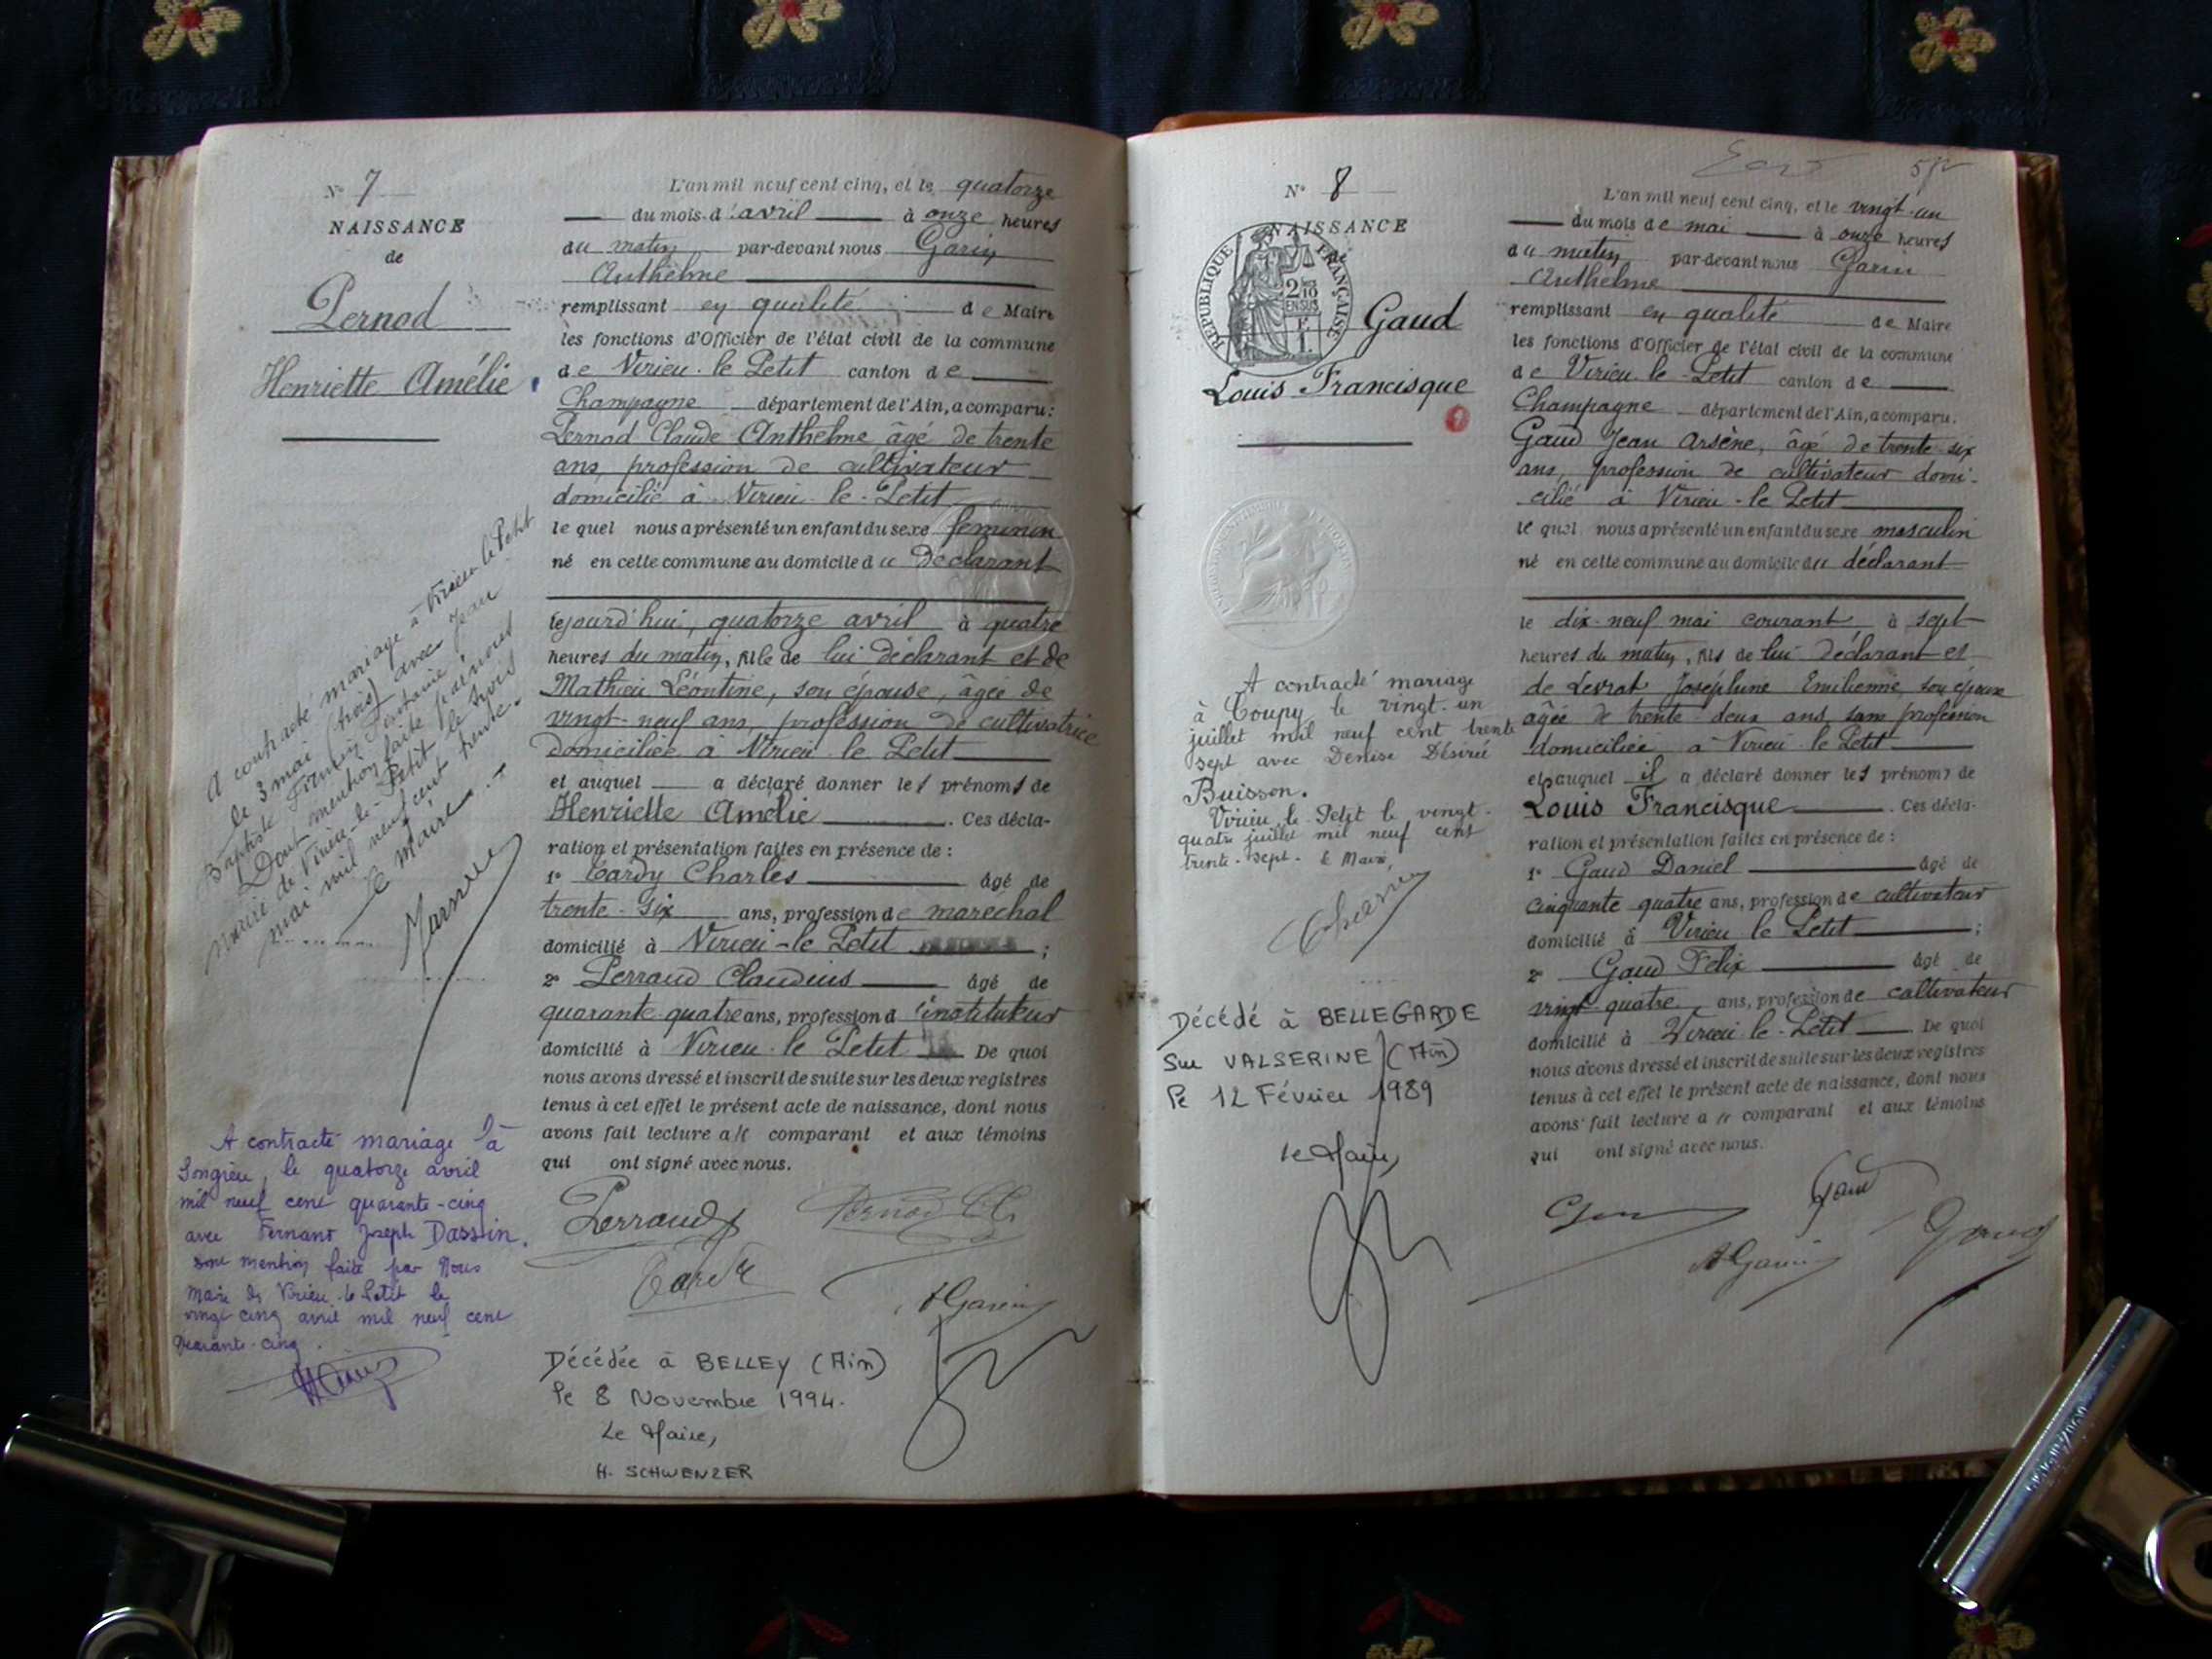 N° 7
NAISSANCE
de
Pernod
Henriette Amélie
A contracté mariage à Virieu le Petit
le 3 mai (trois) avec Jean
Baptiste Firmin Fontaine
Dont mention faite par nous
Maire de Virieu-le-Petit le trois
mai mil neuf cent trente.
Le Maire
A contracté mariage à
Songieu, le quatorze avril
mil neuf cent quarante-cinq
avec Fernand Joseph Dassin.
Dont mention faite par Nous
Maire de Virieu-le-Petit le
vingt cinq avril mil neuf cent
quarante-cinq.
L'an mil neuf cent cinq, et le quatorze
du mois d'avril à onze heures
du matin par-devant nous Garin
Anthelme
remplissant en qualité de Maire
les fonctions d'Officier de l'état civil de la commune
de Virieu-le-Petit canton de
Champagne département de l'Ain, a comparu:
Pernod Claude Anthelme âgé de trente
ans, profession de cultivateur
domicilié à Virieu-le-Petit
le quel nous a présenté un enfant du sexe feminin
né en cette commune au domicile du déclarant
lejourd'hui, quatorze avril à quatre
heures du matin, fille de lui déclarant et de
Mathieu Léontine, son épouse, âgée de
vingt-neuf ans, profession de cultivatrice
domiciliée à Virieu le Petit
et auquel a déclaré donner les prénoms de
Henriette Amélie. Ces décla-
ration et présentation faites en présence de :
1° Tardy Charles âgé de
trente-six ans, profession de maréchal
domicilié à Virieu-le Petit ;
2° Perraud Claudius âgé de
quarante-quatre ans, profession d'instituteur
domicilié à Virieu-le Petit De quoi
nous avons dressé et inscrit de suite sur les deux registres
tenus à cet effet le présent acte de naissance, dont nous
avons fait lecture au comparant et aux témoins
qui ont signé avec nous.
Perraud Pernod Cl
Tardy A Garin
Décédée à BELLEY (Ain)
le 8 Novembre 1994.
Le Maire,
H. SCHWENZER
N° 8
NAISSANCE
RÉPUBLIQUE FRANÇAISE
2/10
EN SUS
Gaud
Louis Francisque
A contracté mariage
à Coupy le vingt-un
juillet mil neuf cent trente
sept avec Denise Désirée
Buisson.
Virieu-le-Petit le vingt-
quatre juillet mil neuf cent
trente-sept. Le Maire,
Décédé à BELLEGARDE
sur VALSERINE (Ain)
le 12 Février 1989
le Maire,
L'an mil neuf cent cinq, et le vingt-un
du mois de mai à onze heures
du matin par-devant nous Garin
Anthelme
remplissant en qualité de Maire
les fonctions d'Officier de l'état civil de la commune
de Virieu-le-Petit canton de
Champagne département de l'Ain, a comparu.
Gaud Jean Arsène, âgé de trente-six
ans, profession de cultivateur domi-
cilié à Virieu-le Petit
le quel nous a présenté un enfant du sexe masculin
né en cette commune au domicile du déclarant
le dix-neuf mai courant à sept
heures du matin, fils de lui déclarant et
de Levrat Joséphine Emilienne, son épouse
âgée de trente-deux ans, sans profession
domiciliée à Virieu-le-Petit
et auquel il a déclaré donner les prénoms de
Louis Francisque. Ces décla-
ration et présentation faites en présence de :
1° Gaud Daniel âgé de
cinquante quatre ans, profession de cultivateur
domicilié à Virieu le Petit ;
2° Gaud Félix âgé de
vingt-quatre ans, profession de cultivateur
domicilié à Virieu-le-Petit. De quoi
nous avons dressé et inscrit de suite sur les deux registres
tenus à cet effet le présent acte de naissance, dont nous
avons fait lecture au comparant et aux témoins
qui ont signé avec nous.
Gaud
A Garin Gaud